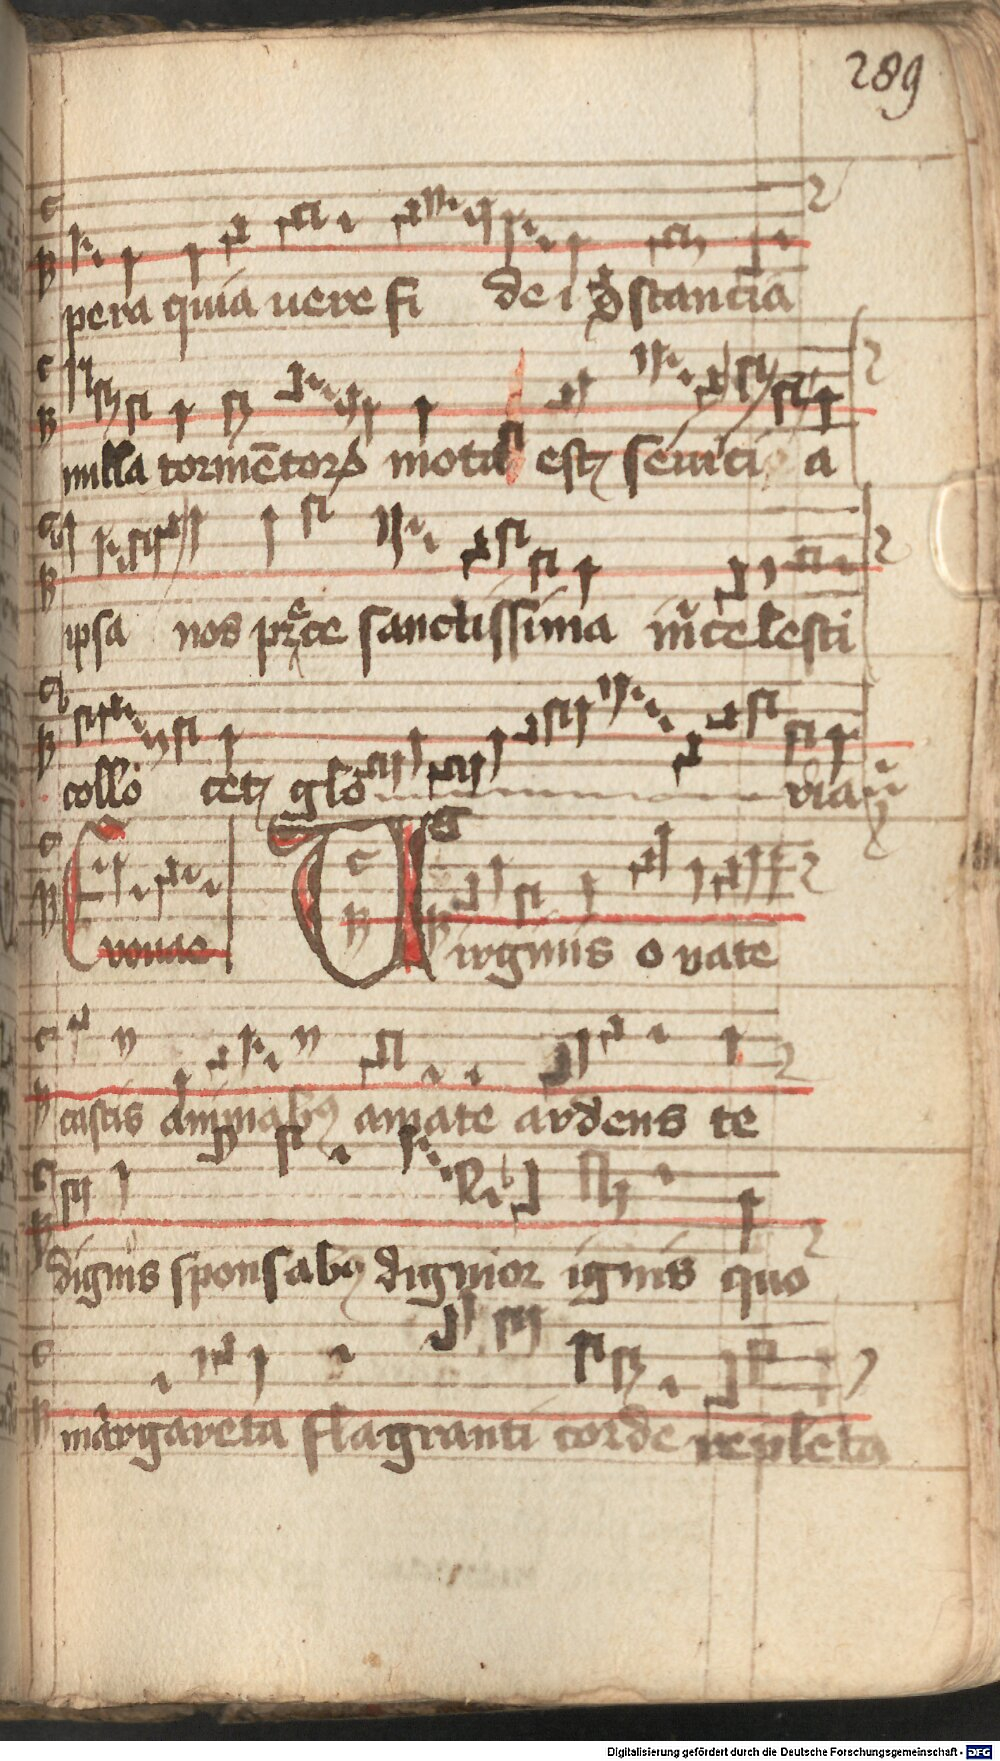 289
pera quia uere fi de i ꝯstancia
nulla tormētoꝝ mota estꝫ seuici a
ipsa nos sanctissima celesti
collo cetꝫ glo ria
Euouae Uirginis o nate
castis animabꝰ amate ardens te
dignis sponsabꝰ dignior ignis quo
margareta flagranti corde repleta
Digitalisierung gefördert durch die Deutsche Forschungsgemeinschaft - DFG